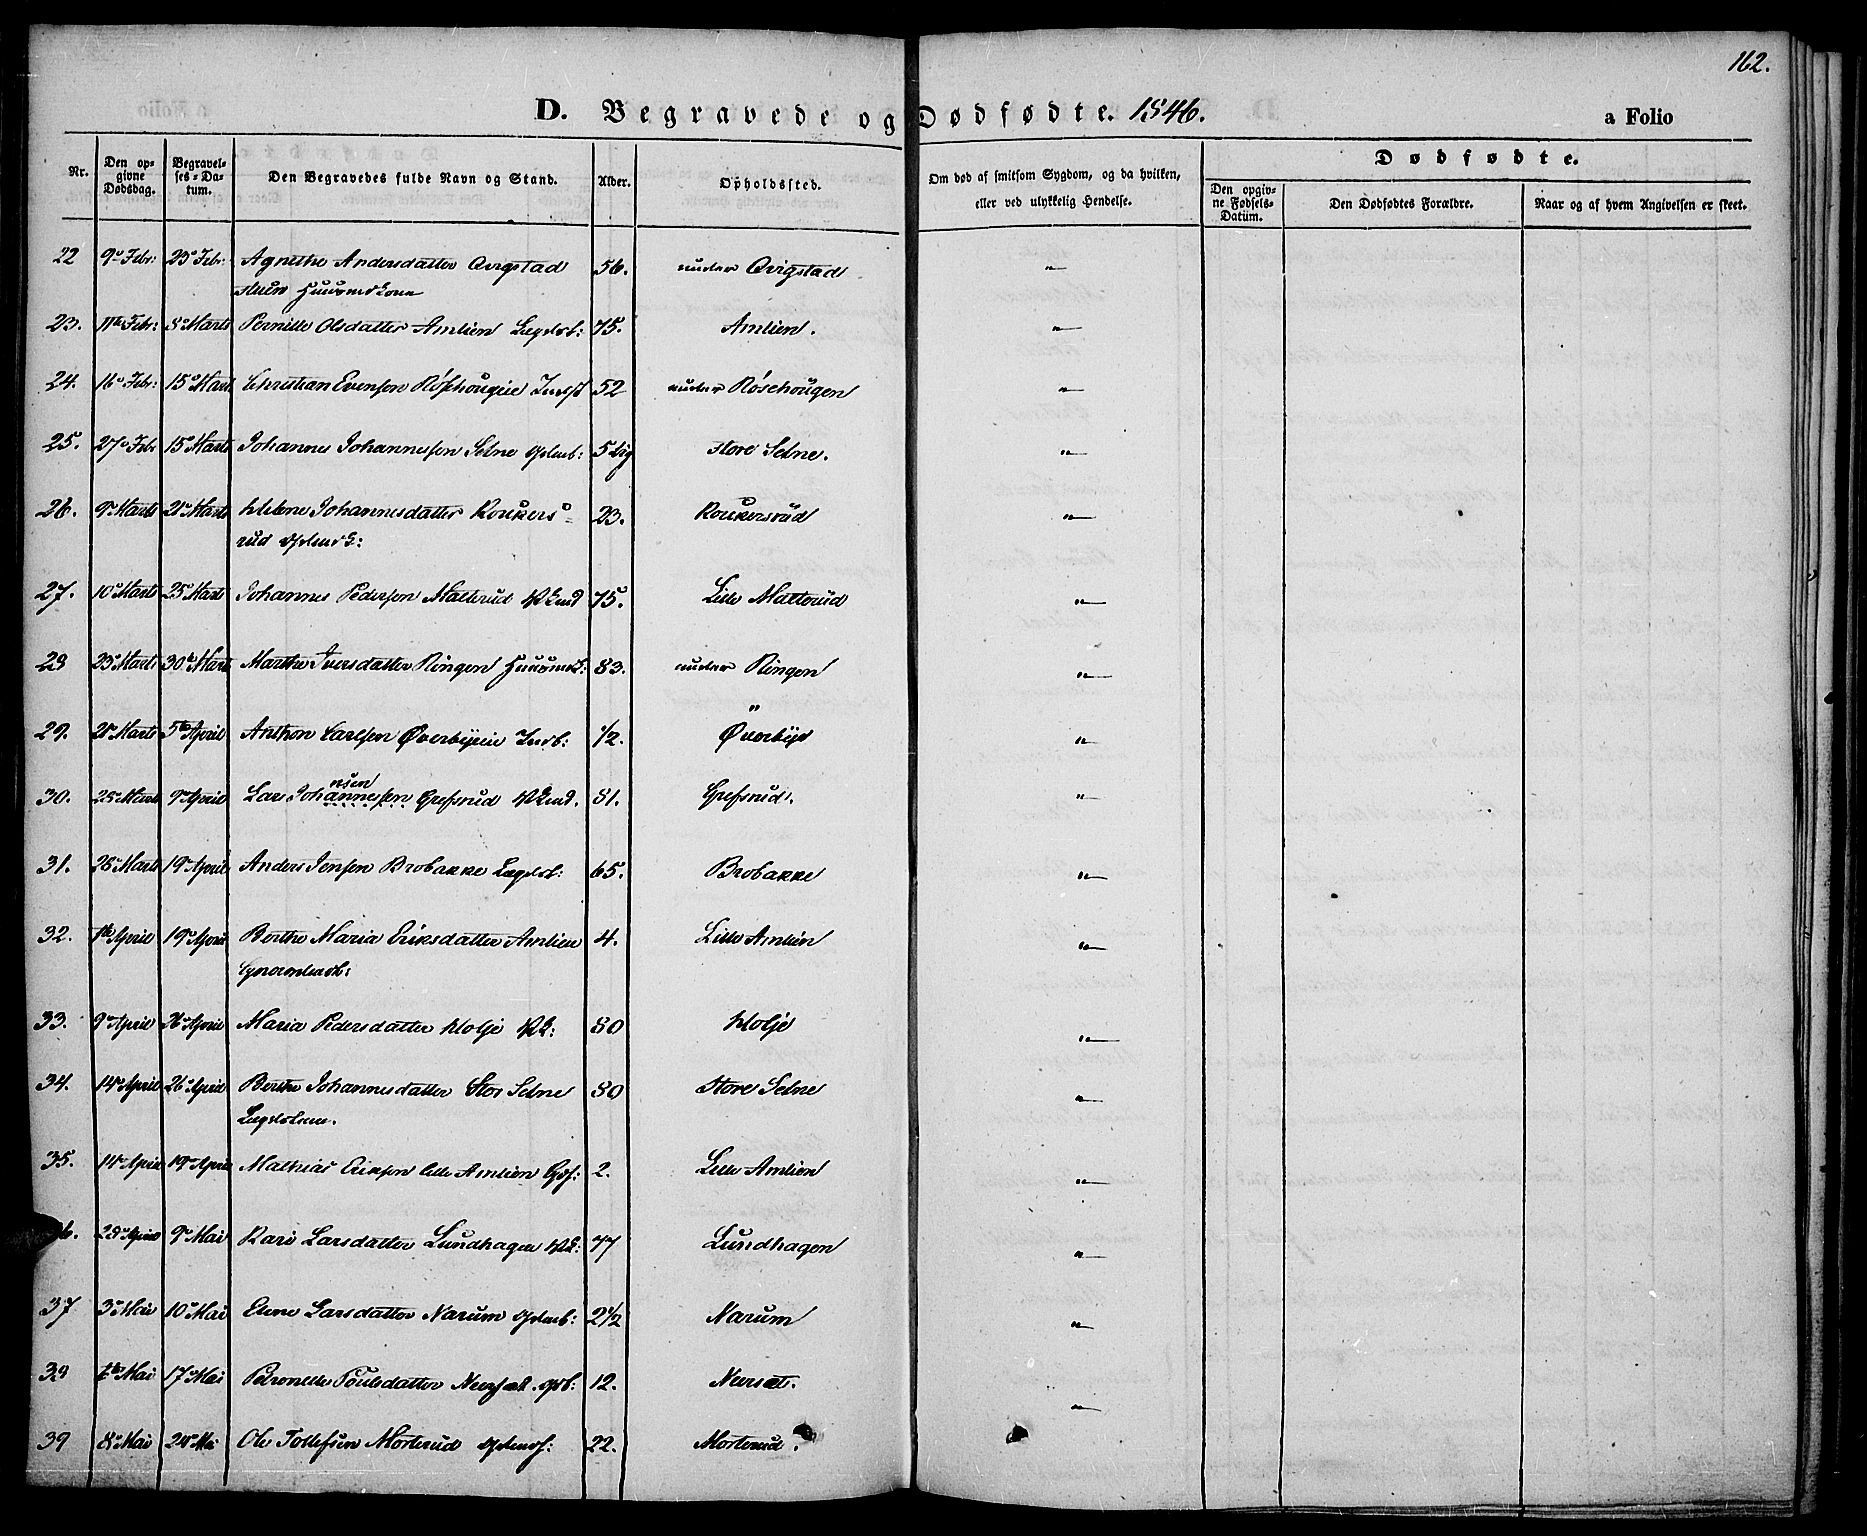 162.
D. Begravede og Dødfødte. 1846.
a Folio
Nr.
Den opgivne Dødsdag.
Begravelses-Datum.
Den Begravedes fulde Navn og Stand.
Alder.
Opholdssted.
Om død af smitsom Sygdom, og da hvilken, eller ved ulykkelig Hendelse.
Dødfødte.
Den opgivne Fødsels-Datum.
Den Dødfødtes Forældre.
Naar og af hvem Angivelsen er skeet.
22 9de Febr: 23de Febr: Agnethe Andersdatter Qvigstad 56. under Qvigstad "
Huusmdkone
23. 11te Febr: 8de Marts Pernille Olsdatter Amlien Lægdsl: 75. Amlien. "
24. 16de Febr: 15de Marts Christian Evensen Røsehougeie Inderst 52 under Røsehougen "
25. 27de Febr 15de Marts Johannes Johannesen Selne 5 Dg store Selne. "
26. 9de Marts 21de Marts Helene Johannesdatter Roukers= 23. Roukersrud "
rud
27. 10de Marts 25de Marts Johannes Pedersen Malterud 75. Lille Malterud "
28 23de Marts 30te Marts Marthe Iversdatter Ringen Huusmk: 83. under Ringen "
29. 21de Marts 5te April Anthon Carlsen Øverbyeie Indb: 1/2. Øverbye "
nsen
30. 25de Marts 9de April Lars Johannesen Grefsrud 81. Grefsrud. "
31. 28de Marts 19de April Anders Jensen Brobakke Lægdsl: 65. Brobakke "
32. 1te April 19de April Berthe Maria Eriksdatter Amlien 4. Lille Amlien "
33. 9de April 26de April Maria Pedersdatter Holje 80 Holje "
34. 14de April 26de April Berthe Johannesdatter Stor Selne 80 Store Selne "
Lægdslem.
35. 14de April 19de April Mathias Eriksen Lille Amlien 2. Lille Amlien "
36. 25de April 9de Mai Kari Larsdatter Lundhagen 77 Lundhagen "
37 3de Mai 10de Mai Elene Larsdatter Narum 2 1/2 Narum "
38 Mai 17de Mai Petronelle Poulsdatter Neersæt 12. Neersæt. "
39 8de Mai 24de Mai Ole Tollefsen Morterud 22. Morterud.